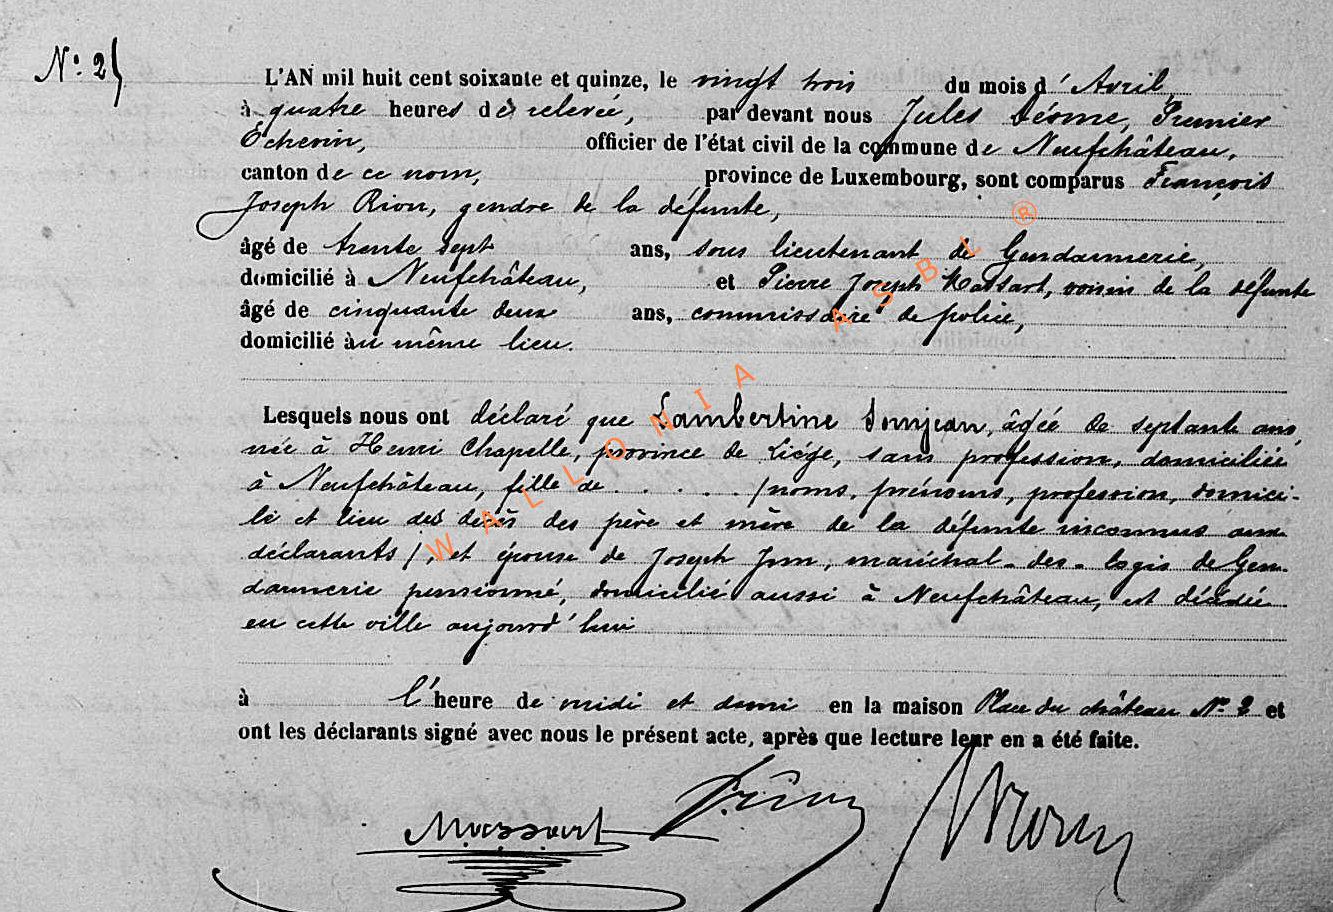 N° 25
L'AN mil huit cent soixante et quinze, le vingt trois du mois d'Avril,
à quatre heures de relevée, par devant nous Jules Désome, Premier
Echevin, officier de l'état civil de la commune de Neufchâteau,
canton de ce nom, province de Luxembourg, sont comparus François
Joseph Rion, gendre de la défunte,
âgé de trente sept ans, sous lieutenant de Gendarmerie,
domicilié à Neufchâteau, et Pierre Joseph Massart, voisin de la défunte
âgé de cinquante deux ans, commissaire de police,
domicilié au même lieu.
Lesquels nous ont déclaré que Lambertine Donjean, âgée de septante ans,
née à Henri Chapelle, province de Liége, sans profession, domiciliée
à Neufchâteau, fille de . . . . . (noms, prénoms, profession, domici-
le et lieu des decès des père et mère de la défunte inconnus aux
déclarants), et épouse de Joseph, maréchal-des-logis de Gen-
darmerie pensionné, domicilié aussi à Neufchâteau, est décédée
en cette ville aujourd'hui
à l'heure de midi et demi en la maison Place du château N° 2 et
ont les déclarants signé avec nous le présent acte, après que lecture leur en a été faite.
Massart Rion
WALLONIA ASBL ®